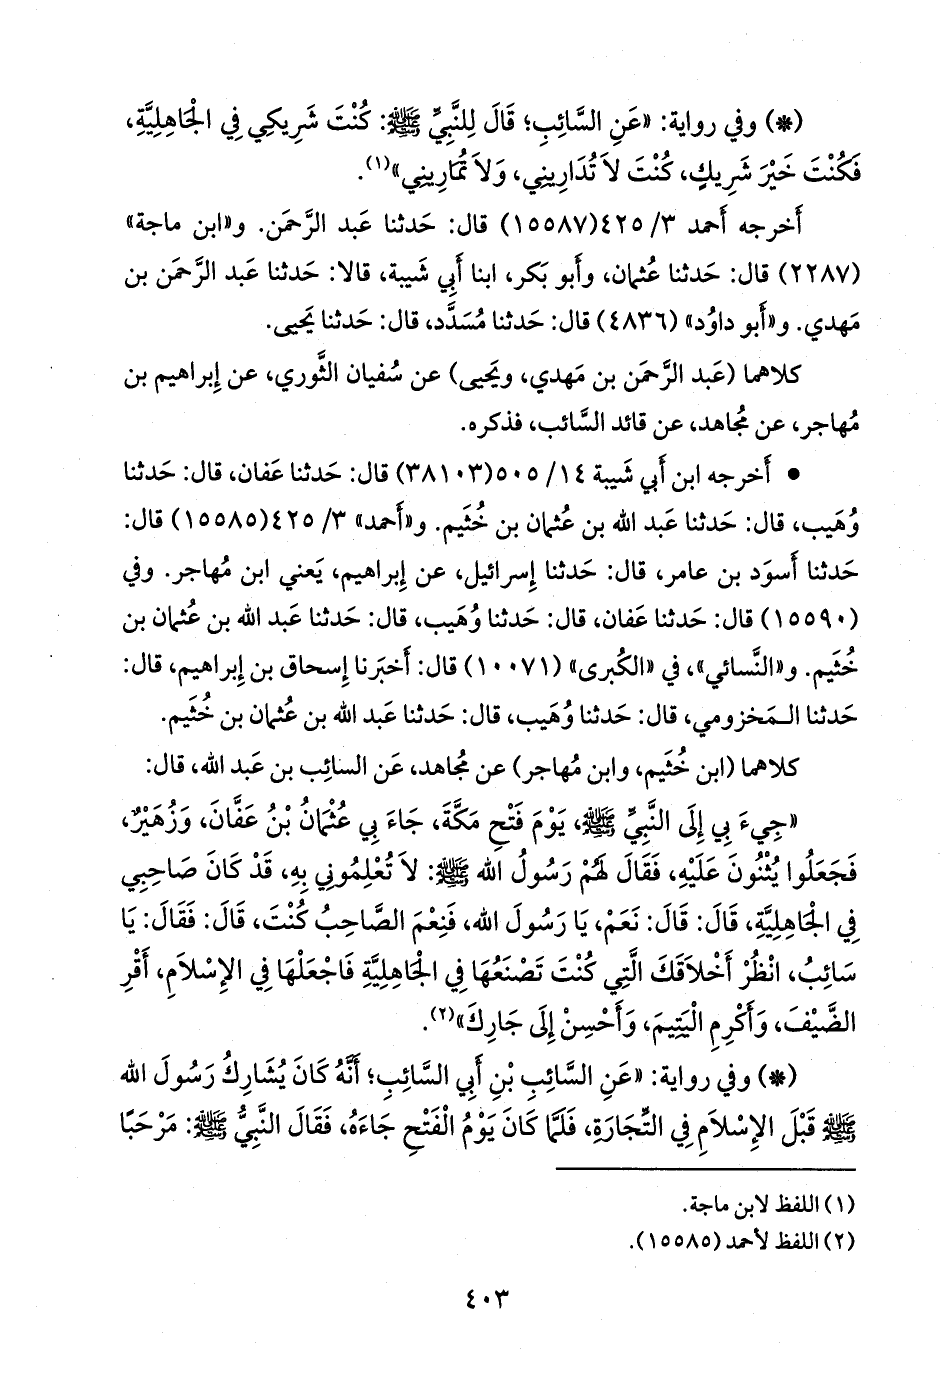 (*) وفي رواية: «عَنِ السَّائِبِ؛ قَالَ لِلنَّبِيِّ ﷺ: كُنْتَ شَرِيكِي فِي الْجَاهِلِيَّةِ،
فَكُنْتَ خَيْرَ شَرِيكٍ، كُنْتَ لاَ تُدَارِينِي، وَلاَ تُمَارِينِي»(١).
أَخرجه أَحمد ٣/ ٤٢٥(١٥٥٨٧) قال: حَدثنا عَبد الرَّحمَن. و«ابن ماجة»
(٢٢٨٧) قال: حَدثنا عُثمان، وأَبو بَكر، ابنا أَبي شَيبة، قالا: حَدثنا عَبد الرَّحمَن بن
مَهدي. و«أَبو داوُد» (٤٨٣٦) قال: حَدثنا مُسَدَّد، قال: حَدثنا يَحيى.
كلاهما (عَبد الرَّحمَن بن مَهدي، ويَحيى) عن سُفيان الثَّوري، عن إِبراهيم بن
مُهاجر، عن مُجاهد، عن قائد السَّائب، فذكره.
• أَخرجه ابن أَبي شَيبة ١٤/ ٥٠٥(٣٨١٠٣) قال: حَدثنا عَفان، قال: حَدثنا
وُهَيب، قال: حَدثنا عَبد الله بن عُثمان بن خُثَيم. و«أَحمد» ٣/ ٤٢٥(١٥٥٨٥) قال:
حَدثنا أَسوَد بن عامر، قال: حَدثنا إِسرائيل، عن إِبراهيم، يَعني ابن مُهاجر. وفي
(١٥٥٩٠) قال: حَدثنا عَفان، قال: حَدثنا وُهَيب، قال: حَدثنا عَبد الله بن عُثمان بن
خُثَيم. و«النَّسائي»، في «الكُبرى» (١٠٠٧١) قال: أَخبَرنا إِسحاق بن إِبراهيم، قال:
حَدثنا الـمَخزومي، قال: حَدثنا وُهَيب، قال: حَدثنا عَبد الله بن عُثمان بن خُثَيم.
كلاهما (ابن خُثَيم، وابن مُهاجر) عن مُجاهد، عَن السائِب بن عَبد الله، قال:
«جِيءَ بِي إِلَى النَّبِيِّ ﷺ، يَوْمَ فَتْحِ مَكَّةَ، جَاءَ بِي عُثْمَانُ بْنُ عَفَّانَ، وَزُهَيْرٌ،
فَجَعَلُوا يُثْنُونَ عَلَيْهِ، فَقَالَ لَهُمْ رَسُولُ الله ﷺ: لاَ تُعْلِمُونِي بِهِ، قَدْ كَانَ صَاحِبِي
فِي الْجَاهِلِيَّةِ، قَالَ: قَالَ: نَعَمْ، يَا رَسُولَ الله، فَنِعْمَ الصَّاحِبُ كُنْتَ، قَالَ: فَقَالَ: يَا
سَائِبُ، انْظُرْ أَخْلاَقَكَ الَّتِي كُنْتَ تَصْنَعُهَا فِي الْجَاهِلِيَّةِ فَاجْعَلْهَا فِي الإِسْلاَمِ، أَقْرِ
الضَّيْفَ، وَأَكْرِمِ الْيَتِيمَ، وَأَحْسِنْ إِلَى جَارِكَ»(٢).
(*) وفي رواية: «عَنِ السَّائِبِ بْنِ أَبِي السَّائِبِ؛ أَنَّهُ كَانَ يُشَارِكُ رَسُولَ الله
ﷺ قَبْلَ الإِسْلاَمِ فِي التِّجَارَةِ، فَلَمَّا كَانَ يَوْمُ الْفَتْحِ جَاءَهُ، فَقَالَ النَّبِيُّ ﷺ: مَرْحَبًا
(١) اللفظ لابن ماجة.
(٢) اللفظ لأحمد (١٥٥٨٥).
٤٠٣